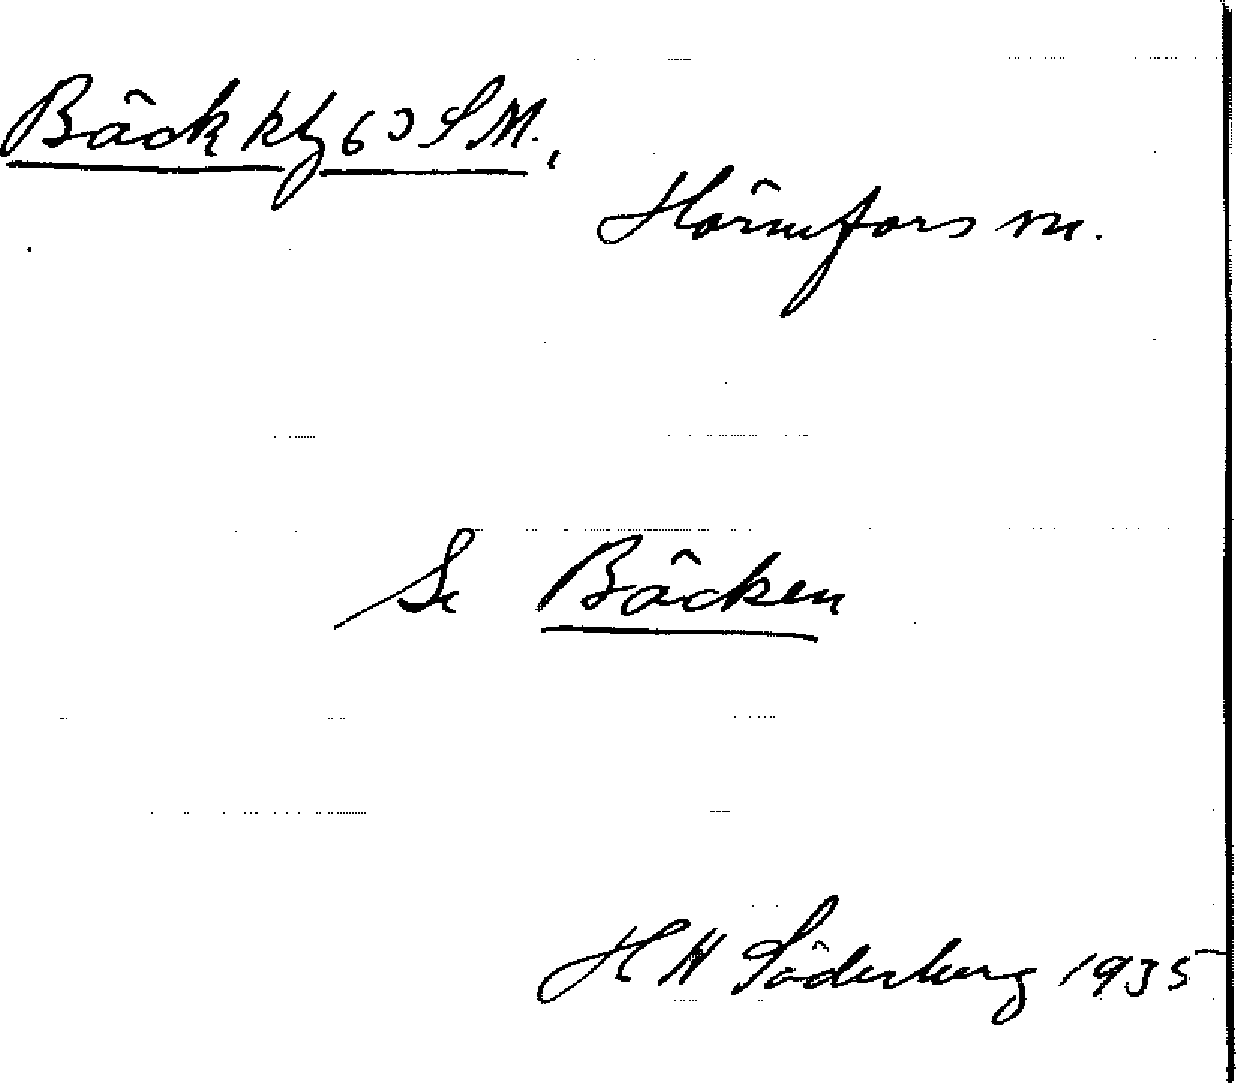 Bäck kbf 63 S M.,
Hörnefors sn.
Se Bäcken
H W Söderberg 1935